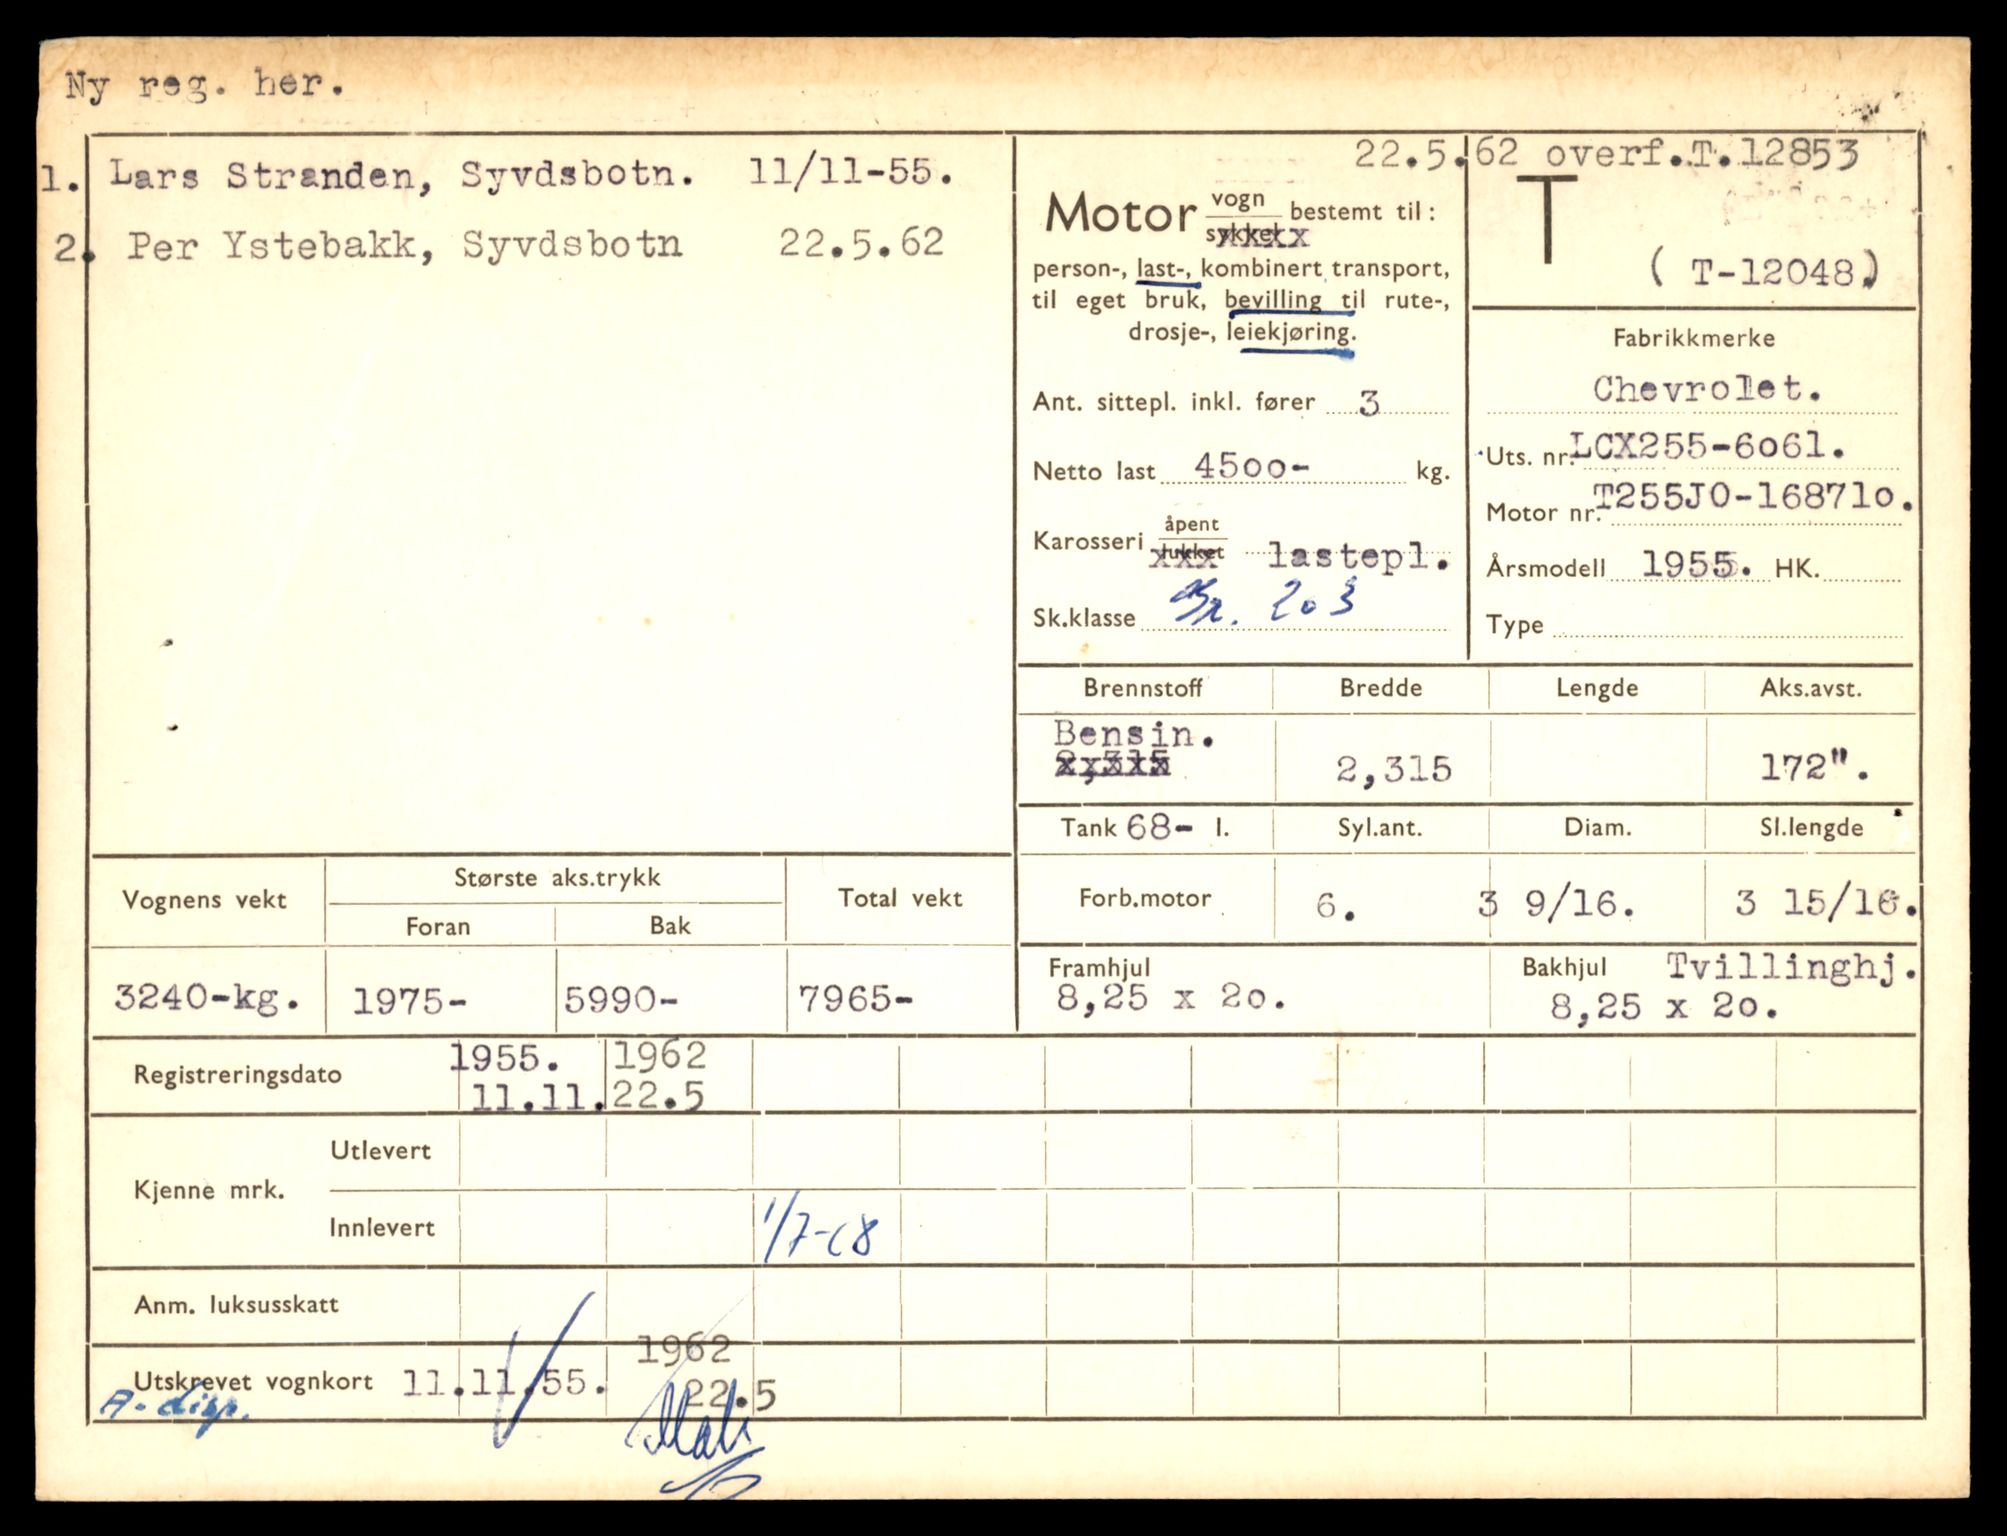 Ny reg. her.
1. Lars Stranden, Syvdsbotn. 11/11-55.
2. Per Ystebakk, Syvdsbotn 22.5.62
22.5.62 overf.T.12853
Motor vogn sykkel bestemt til:
person-, last-, kombinert transport,
til eget bruk, bevilling til rute-,
drosje-, leiekjøring.
T
( T-12048)
Ant. sittepl. inkl. fører 3
Netto last 4500- kg.
Karosseri åpent lukket lastepl.
Sk.klasse Gr. 2 o 3
Fabrikkmerke
Chevrolet.
Uts. nr. LCX255-6o61.
Motor nr. T255JO-16871o.
Årsmodell 1955. HK.
Type
Brennstoff Bredde Lengde Aks.avst.
Bensin.
2,315 2,315 172".
Tank 68- l. Syl.ant. Diam. Sl.lengde
Forb.motor 6. 3 9/16. 3 15/16.
Framhjul Bakhjul Tvillinghj.
8,25 x 2o. 8,25 x 2o.
Vognens vekt Største aks.trykk Total vekt
Foran Bak
3240-kg. 1975- 5990- 7965-
Registreringsdato 1955. 1962
11.11. 22.5
Kjenne mrk. Utlevert
Innlevert 1/7-68
Anm. luksusskatt
1962
Utskrevet vognkort 11.11.55. 22.5
A-disp.